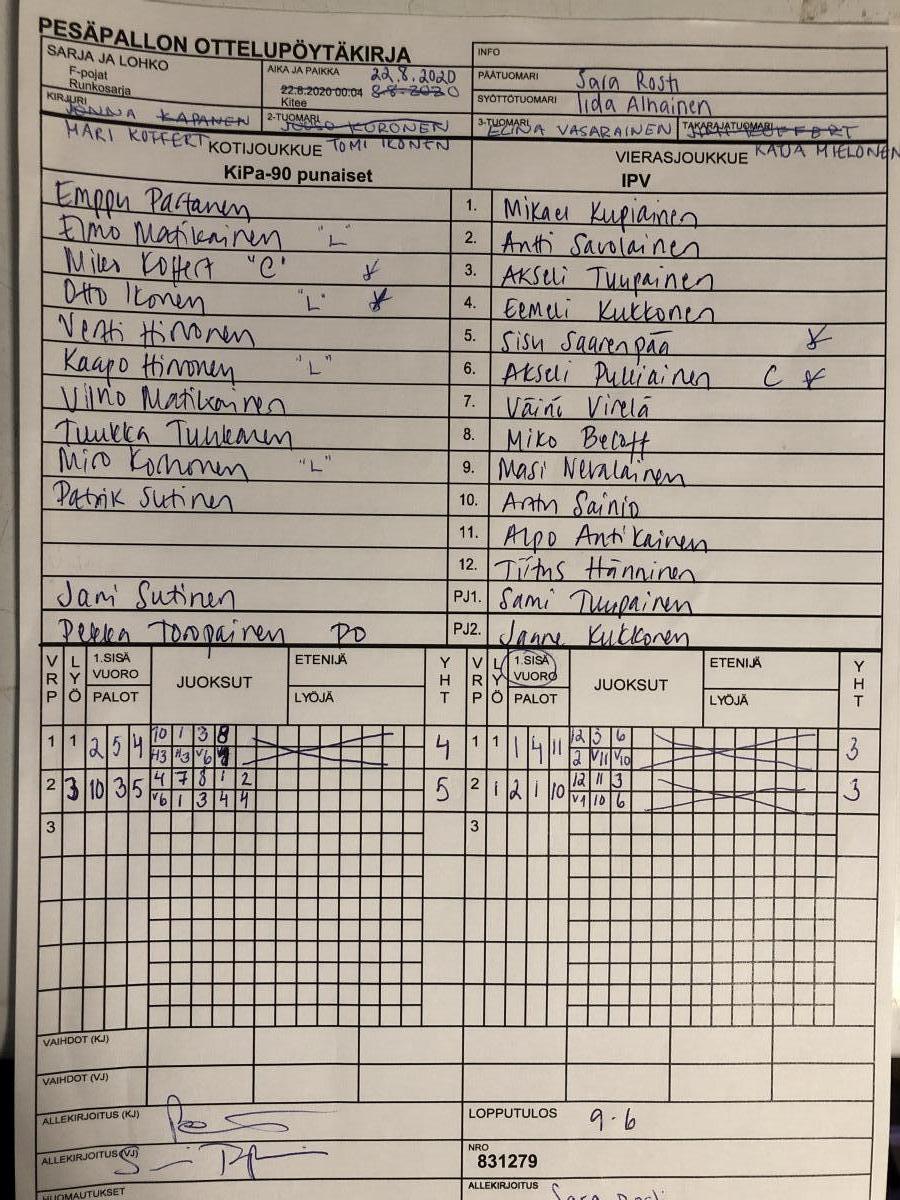 PESÄPALLON OTTELUPÖYTÄKIRJA
SARJA JA LOHKO
F-pojat
Runkosarja
AIKA JA PAIKKA 22.8.2020
22.8.2020 00:04 8.8.2020
Kitee
INFO
PÄÄTUOMARI Sara Rosti
SYÖTTÖTUOMARI Iida Alhainen
KIRJURI JONNA KAPANEN
MARI KOFFERT
2-TUOMARI JOUSO KORONEN
TOMI IKONEN
3-TUOMARI ELINA VASARAINEN
TAKARAJATUOMARI
KATJA MIELONEN
KOTIJOUKKUE
KiPa-90 punaiset
VIERASJOUKKUE
IPV
Emppu Partanen 1. Mikael Kupiainen
Elmo Matikainen "L" 2. Antti Savolainen
Miles Koffert "C" 3. Akseli Tuupainen
Otto Ikonen "L" 4. Eemeli Kukkonen
Vertti Hirvonen 5. Sisu Saarenpää
Kaapo Hirvonen "L" 6. Akseli Pulliainen C
Vilho Matikainen 7. Väinö Virelä
Tuukka Tuhkanen 8. Miko Becoff
Miro Korhonen "L" 9. Masi Nevalainen
Patrik Sutinen 10. Arttu Sainio
11. Alpo Antikainen
12. Tiitus Hänninen
Jani Sutinen PJ1. Sami Tuupainen
Pekka Toropainen PO PJ2. Janne Kukkonen
VRP LYÖ 1.SISÄ VUORO PALOT JUOKSUT ETENIJÄ LYÖJÄ YHT VRP LYÖ 1.SISÄ VUORO PALOT JUOKSUT ETENIJÄ LYÖJÄ YHT
1 1 2 5 4 10 1 3 8 4 1 1 1 4 11 12 3 6 3
H3 H3 V6 2 V11 V10
2 3 10 3 5 4 7 8 1 2 5 2 1 2 1 10 12 11 3 3
V6 1 3 4 4 V1 10 6
3 3
VAIHDOT (KJ)
VAIHDOT (VJ)
ALLEKIRJOITUS (KJ)
LOPPUTULOS 9-6
ALLEKIRJOITUS (VJ)
NRO
831279
HUOMAUTUKSET
ALLEKIRJOITUS Sara Rosti